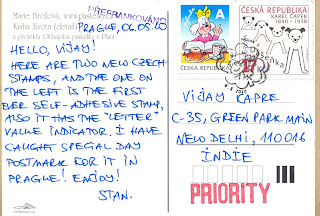 Marie Brožová, www.pastelky.cz
Kniha života (detail)
z projektu Obhajoba pastelky v Plzni
PŘEFRANKOVÁNO
PRAGUE, 06.05.20
HELLO, VIJAY!
HERE ARE TWO NEW CZECH
STAMPS, AND THE ONE
ON THE LEFT IS THE FIRST
EVER SELF-ADHESIVE STAMP,
ALSO IT HAS THE "LETTER"
VALUE INDICATOR. I HAVE
CAUGHT SPECIAL DAY
POSTMARK FOR IT IN
PRAGUE! ENJOY!
STAN.
A
ČESKÁ REPUBLIKA
ČESKÁ REPUBLIKA
KAREL ČAPEK
1890 - 1938
17
VIJAY CAPRE
C-35, GREEN PARK MAIN
NEW DELHI, 110016
INDIE
PRIORITY